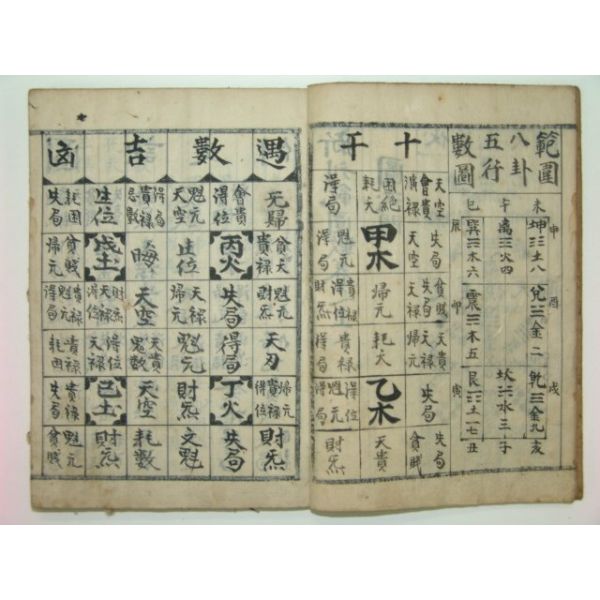 範圍
八卦
五行
數圖
未 坤☷土八 申
兌☱金二 酉
乾☰金九 戌 亥
午 離☲火四
坎☵水三 子
巳 巽☴木六 辰
震☳木五 卯
艮☶土七 寅 丑
十干
天空 會貴
失局
貧賤 天祿
天貴 歸元
失局
失局 貧賤
困絕 耗夭
甲木
歸元
耗夭
乙木
天貴
得局
魁元 得局
得位 魁元 財炁
貴祿 得局
得位 魁元
財炁
遇數吉凶
旡歸
貴祿
魁元 財炁
天刃
歸元 貴祿 得位
財炁
會貴 得位
丙火
失局
得局
丁火
失局
魁元 天空
生位
天祿 歸元
魁元
財炁
文魁
貴祿 忌數
晦
天空
天貴 鬼數
天空
耗數
生位
戊土
財炁 天祿
得位 天祿
己土
財炁
耗困 失局
貧賤 歸元
貴祿 魁元 得局
貴祿 耗困
貴祿 失局
魁元 貧賤